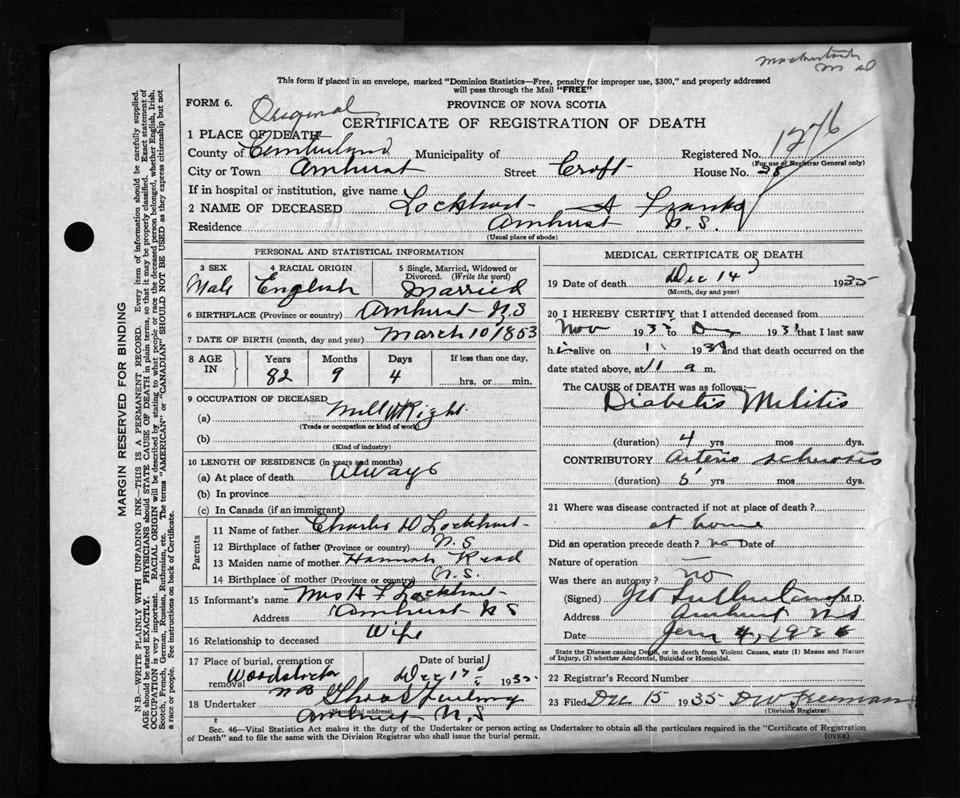 This form if placed in an envelope, marked "Dominion Statistics—Free, penalty for improper use, $300," and properly addressed
will pass through the Mail "FREE"
FORM 6. Original
PROVINCE OF NOVA SCOTIA
CERTIFICATE OF REGISTRATION OF DEATH
1 PLACE OF DEATH
County of Cumberland Municipality of Registered No. 1276
(For use of Registrar General only)
City or Town Amherst Street Croft House No. 28
If in hospital or institution, give name
2 NAME OF DECEASED Lockhart A Frank
Residence Amherst N.S.
(Usual place of abode)
PERSONAL AND STATISTICAL INFORMATION
3 SEX 4 RACIAL ORIGIN 5 Single, Married, Widowed or
Divorced. (Write the word)
Male English Married
6 BIRTHPLACE (Province or country) Amherst N.S
7 DATE OF BIRTH (month, day and year) March 10 1853
8 AGE IN Years Months Days If less than one day,
82 9 4 hrs. or min.
9 OCCUPATION OF DECEASED
(a) Mill Wright
(Trade or occupation or kind of work)
(b)
(Kind of industry)
10 LENGTH OF RESIDENCE (in years and months)
(a) At place of death always
(b) In province
(c) In Canada (if an immigrant)
Parents
11 Name of father Charles D Lockhart
12 Birthplace of father (Province or country) N.S
13 Maiden name of mother Hannah Read
14 Birthplace of mother (Province or country) N.S.
15 Informant's name Mrs A F Lockhart
Address Amherst N S
16 Relationship to deceased Wife
17 Place of burial, cremation or removal Date of burial
Woodstock N B Dec 17 1935
18 Undertaker
(Name and address)
Amherst N.S
MEDICAL CERTIFICATE OF DEATH
19 Date of death Dec 14 1935
(Month, day and year)
20 I HEREBY CERTIFY that I attended deceased from
Nov 193 to 193 that I last saw
h alive on 193 and that death occurred on the
date stated above, at 11 a m.
The CAUSE of DEATH was as follows:—
Diabetis Melitis
(duration) 4 yrs mos dys.
CONTRIBUTORY Arterio sclerosis
(duration) 5 yrs. mos. dys.
21 Where was disease contracted if not at place of death?
at home
Did an operation precede death? no Date of
Nature of operation
Was there an autopsy? no
(Signed) M.D.
Address Amherst N S
Date Jany 4, 1936
State the Disease causing Death, or in death from Violent Causes, state (1) Means and Nature
of Injury, (2) whether Accidental, Suicidal or Homicidal.
22 Registrar's Record Number
23 Filed Dec 15 1935 D W Freeman
(Division Registrar)
Sec. 46—Vital Statistics Act makes it the duty of the Undertaker or person acting as Undertaker to obtain all the particulars required in the "Certificate of Registration
of Death" and to file the same with the Division Registrar who shall issue the burial permit. (OVER)
MARGIN RESERVED FOR BINDING
N.B.—WRITE PLAINLY WITH UNFADING INK—THIS IS A PERMANENT RECORD. Every item of information should be carefully supplied.
AGE should be stated EXACTLY. PHYSICIANS should STATE CAUSE OF DEATH in plain terms, so that it may be properly classified. Exact statement of
OCCUPATION is very important. RACIAL ORIGIN will be described by stating to what people or race the deceased person belonged, whether English, Irish,
Scotch, French, German, Russian, Ruthenian, etc. The terms "AMERICAN" or "CANADIAN" SHOULD NOT BE USED as they express citizenship but not
a race or people. See instructions on back of Certificate.